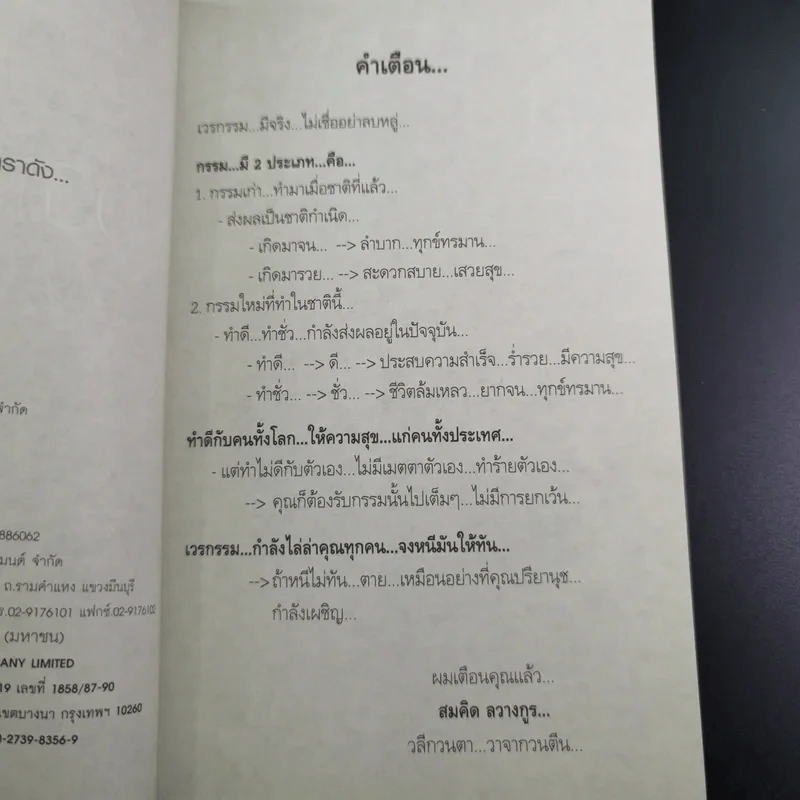 ราดัง...
จำกัด
886062
มนต์ จำกัด
ถ.รามคำแหง แขวงมีนบุรี
ร.02-9176101 แฟกซ์.02-9176100
(มหาชน)
ANY LIMITED
19 เลขที่ 1858/87-90
เขตบางนา กรุงเทพฯ 10260
0-2739-8356-9
คำเตือน...
เวรกรรม...มีจริง...ไม่เชื่ออย่าลบหลู่...
กรรม...มี 2 ประเภท...คือ...
1. กรรมเก่า...ทำมาเมื่อชาติที่แล้ว...
- ส่งผลเป็นชาติกำเนิด...
- เกิดมาจน... --> ลำบาก...ทุกข์ทรมาน...
- เกิดมารวย... --> สะดวกสบาย...เสวยสุข...
2. กรรมใหม่ที่ทำในชาตินี้...
- ทำดี...ทำชั่ว...กำลังส่งผลอยู่ในปัจจุบัน...
- ทำดี... --> ดี... --> ประสบความสำเร็จ...ร่ำรวย...มีความสุข...
- ทำชั่ว... --> ชั่ว... --> ชีวิตล้มเหลว...ยากจน...ทุกข์ทรมาน...
ทำดีกับคนทั้งโลก...ให้ความสุข...แก่คนทั้งประเทศ...
- แต่ทำไม่ดีกับตัวเอง...ไม่มีเมตตาตัวเอง...ทำร้ายตัวเอง...
--> คุณก็ต้องรับกรรมนั้นไปเต็มๆ...ไม่มีการยกเว้น...
เวรกรรม...กำลังไล่ล่าคุณทุกคน...จงหนีมันให้ทัน...
--> ถ้าหนีไม่ทัน...ตาย...เหมือนอย่างที่คุณปรียานุช...
กำลังเผชิญ...
ผมเตือนคุณแล้ว...
สมคิด ลวางกูร...
วลีกวนตา...วาจากวนตีน...